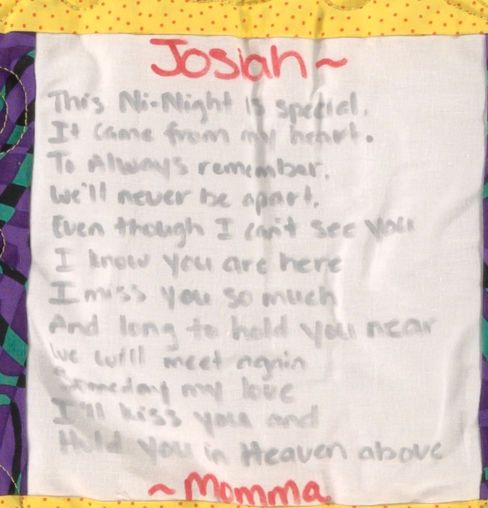 Josiah~
This Ni-Night is special.
It came from my heart.
To Always remember.
We'll never be apart.
Even though I can't see you
I know you are here
I miss you so much
And long to hold you near
We will meet again
Someday my love
I'll kiss you and
Hold you in Heaven above
~Momma